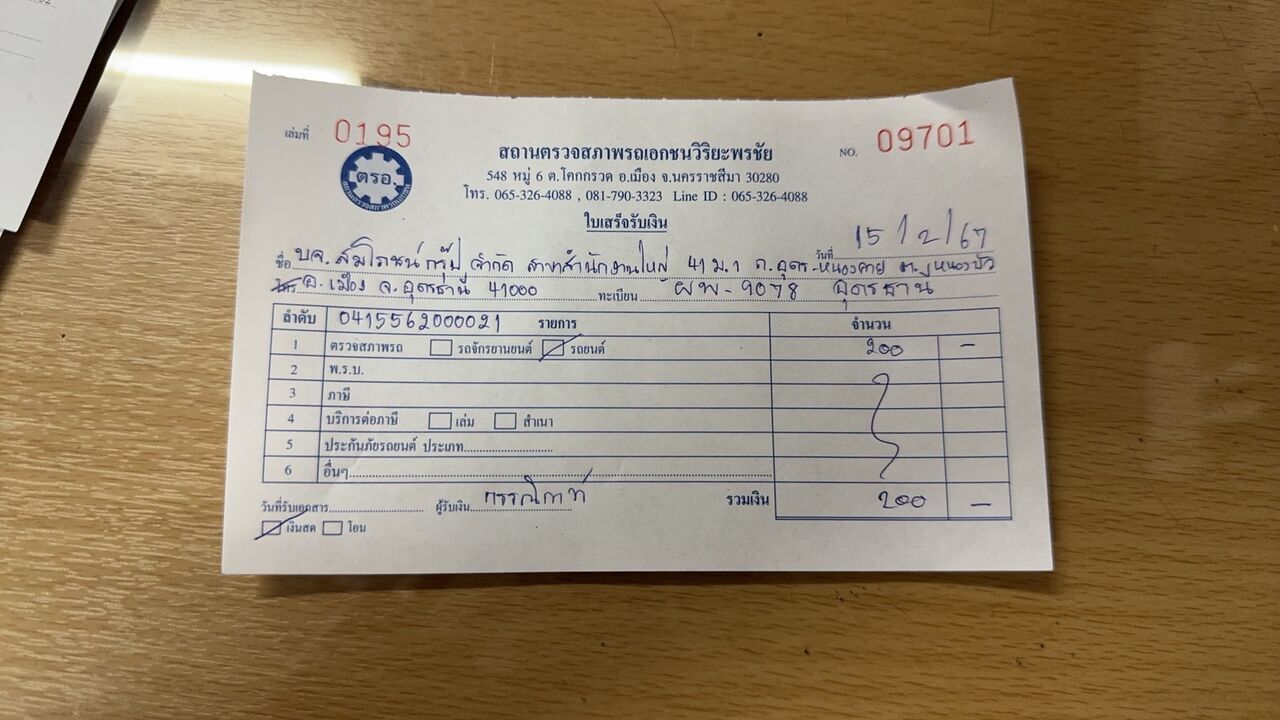 เล่มที่ 0195
NO. 09701
ตรอ.
สถานตรวจสภาพรถเอกชน
สถานตรวจสภาพรถเอกชนวิริยะพรชัย
548 หมู่ 6 ต.โคกกรวด อ.เมือง จ.นครราชสีมา 30280
โทร. 065-326-4088 , 081-790-3323 Line ID : 065-326-4088
ใบเสร็จรับเงิน
วันที่ 15/2/67
ชื่อ บจ. สัมโภชน์ กรุ๊ป จำกัด สาขาสำนักงานใหญ่ 41 ม.1 ถ.อุดร-หนองคาย ต.หนองบัว
อ.เมือง จ.อุดรธานี 41000 ทะเบียน ผพ-9078 อุดรธานี
ลำดับ 0415562000021 รายการ จำนวน
1 ตรวจสภาพรถ รถจักรยานยนต์ รถยนต์ 200 -
2 พ.ร.บ.
3 ภาษี
4 บริการต่อภาษี เล่ม สำเนา
5 ประกันภัยรถยนต์ ประเภท
6 อื่นๆ
วันที่รับเอกสาร ผู้รับเงิน กรรณิการ์ รวมเงิน 200 -
เงินสด โอน